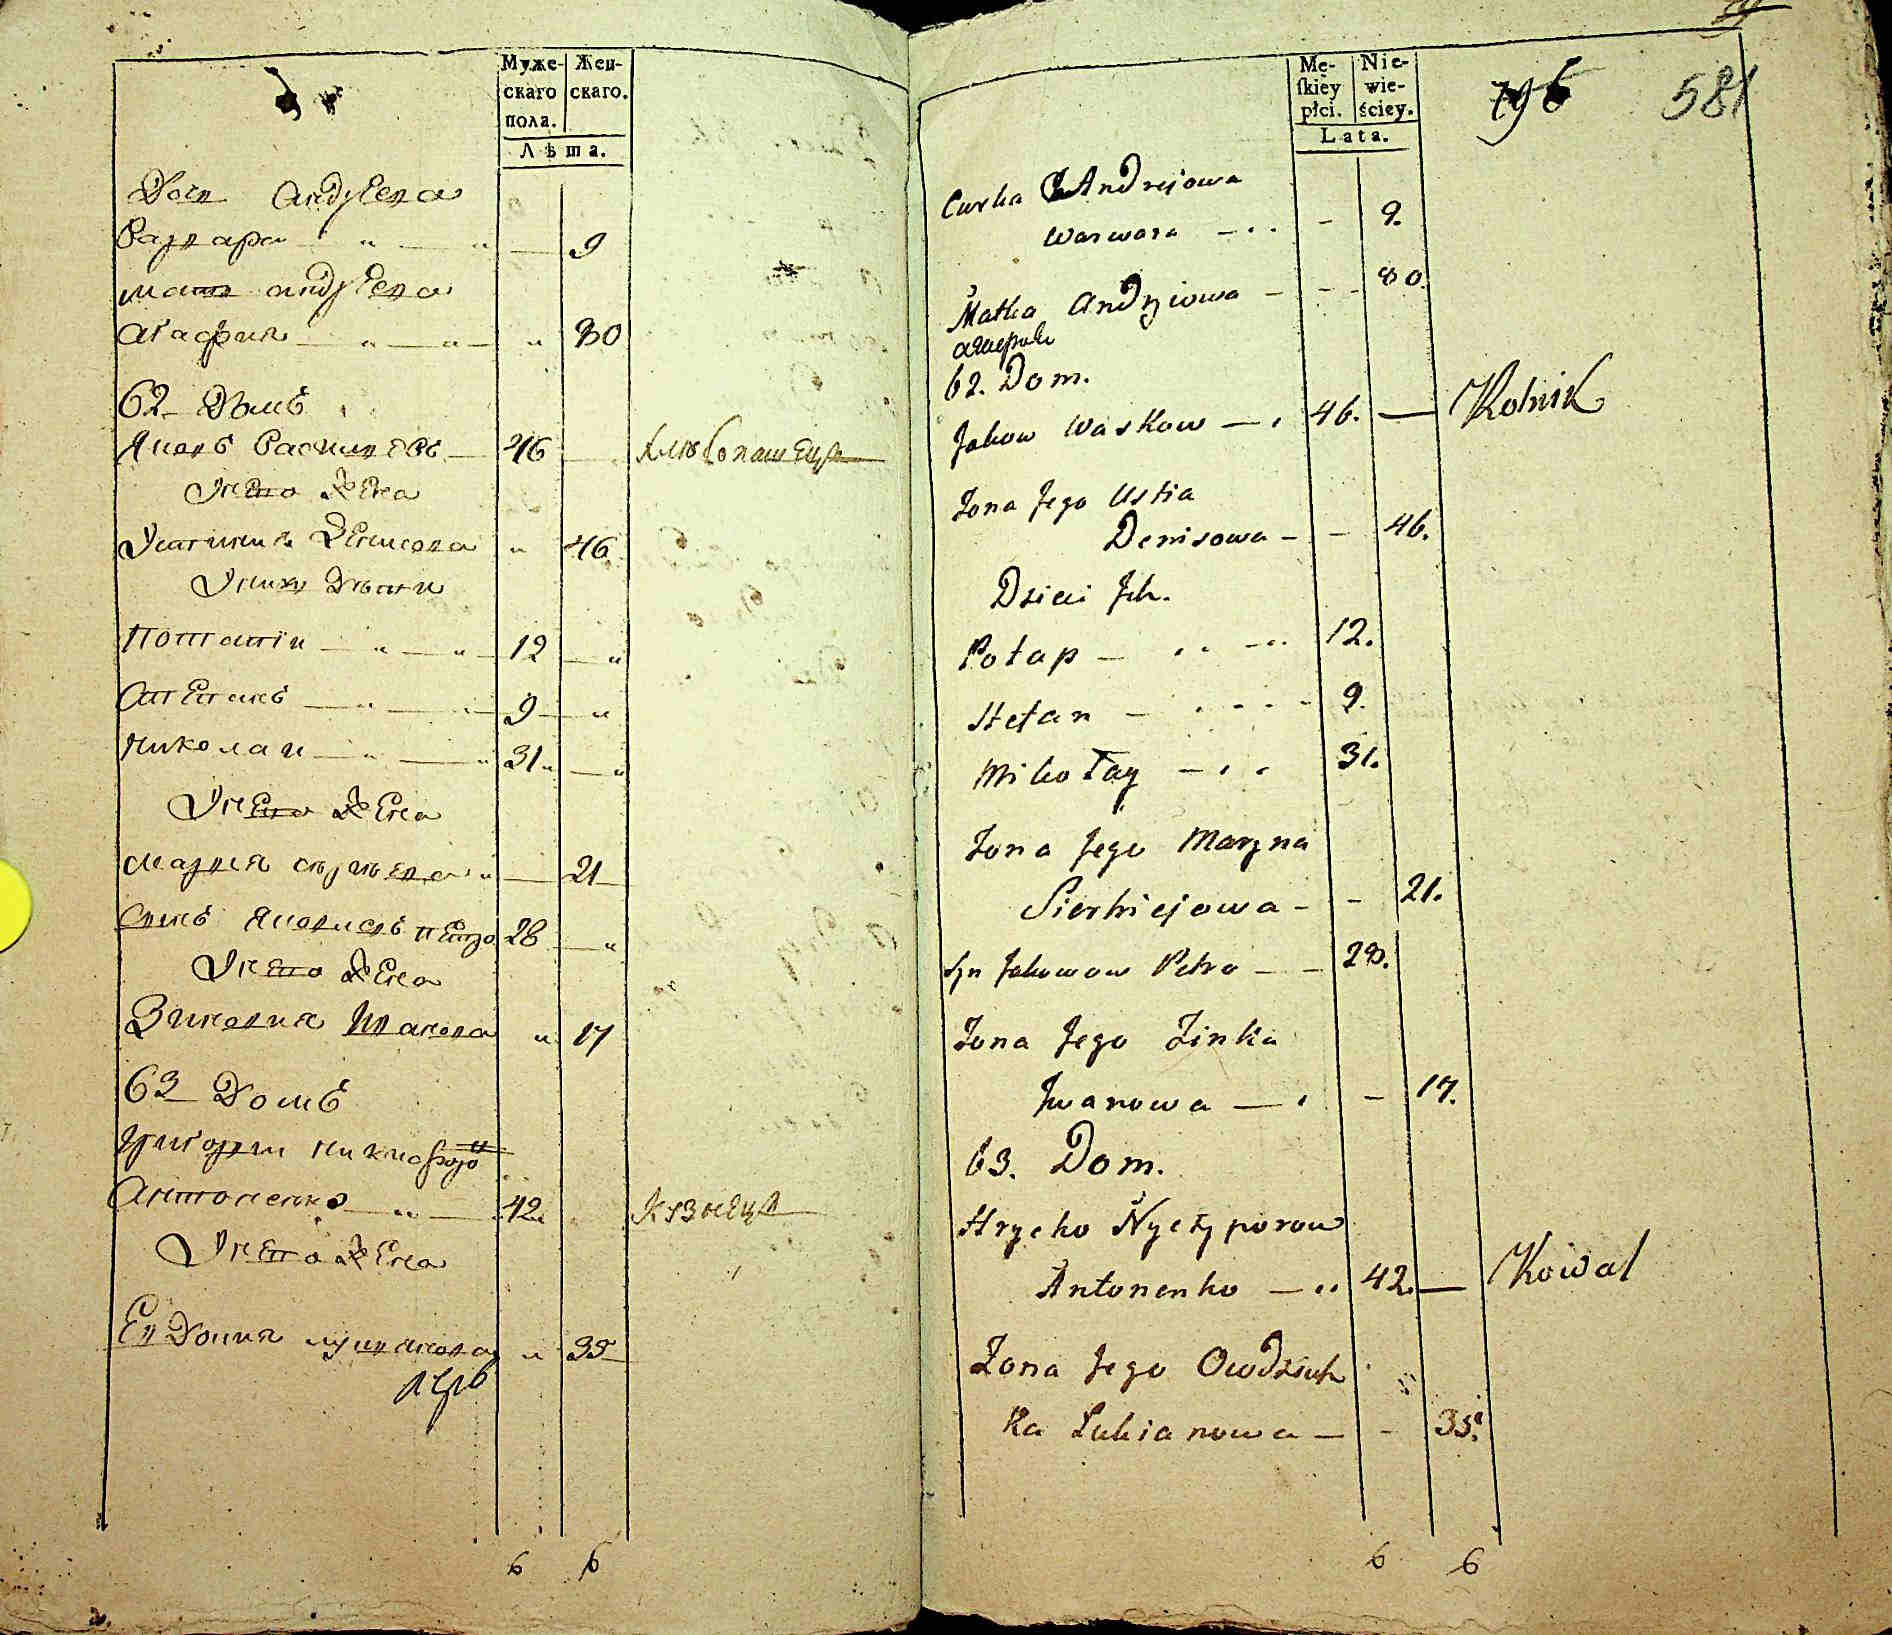 Муже-
скаго
пола.
Жен-
скаго.
Лѣта.
Дочь Андрѣева
Варвара 9
мать андрѣева
Агафия 80
62 Домъ
Яковъ Васильевъ 46 хлѣбопашецъ
У него жена
Устиния Денисова 46
У нихъ Дѣти
Потапий 12
Степанъ 9
Николай 31
У него жена
Мария 21
Сынъ Яковлевъ Петро 28
У него жена
Зиновия Иванова 17
63 Домъ
Григорий Никифоро
Антоненко 42 Кузнецъ
У него жена
Евдокия лукьянова 35
6 6
Mę-
skiey
płci.
Nie-
wie-
ściey.
Lata.
796 581
Curka Andrejowa
Warwara - 9.
Matka Andrziowa - 80
62. Dom.
Jakow Waskow 46. Rolnik
Żona Jego Ustia
Denisowa - 46.
Dzieci Ich.
Potap 12.
Stefan 9.
Mikołay 31.
Żona Jego Maryna
Sierhiejowa - 21.
Syn Jakowow Petro 28.
Żona Jego Zinka
Iwanowa - 17.
63. Dom.
Hrycko Nyczyporow
Antonenko 42. Kowal
Żona Jego Owdziuch
ka Lukianowa - 35.
6 6